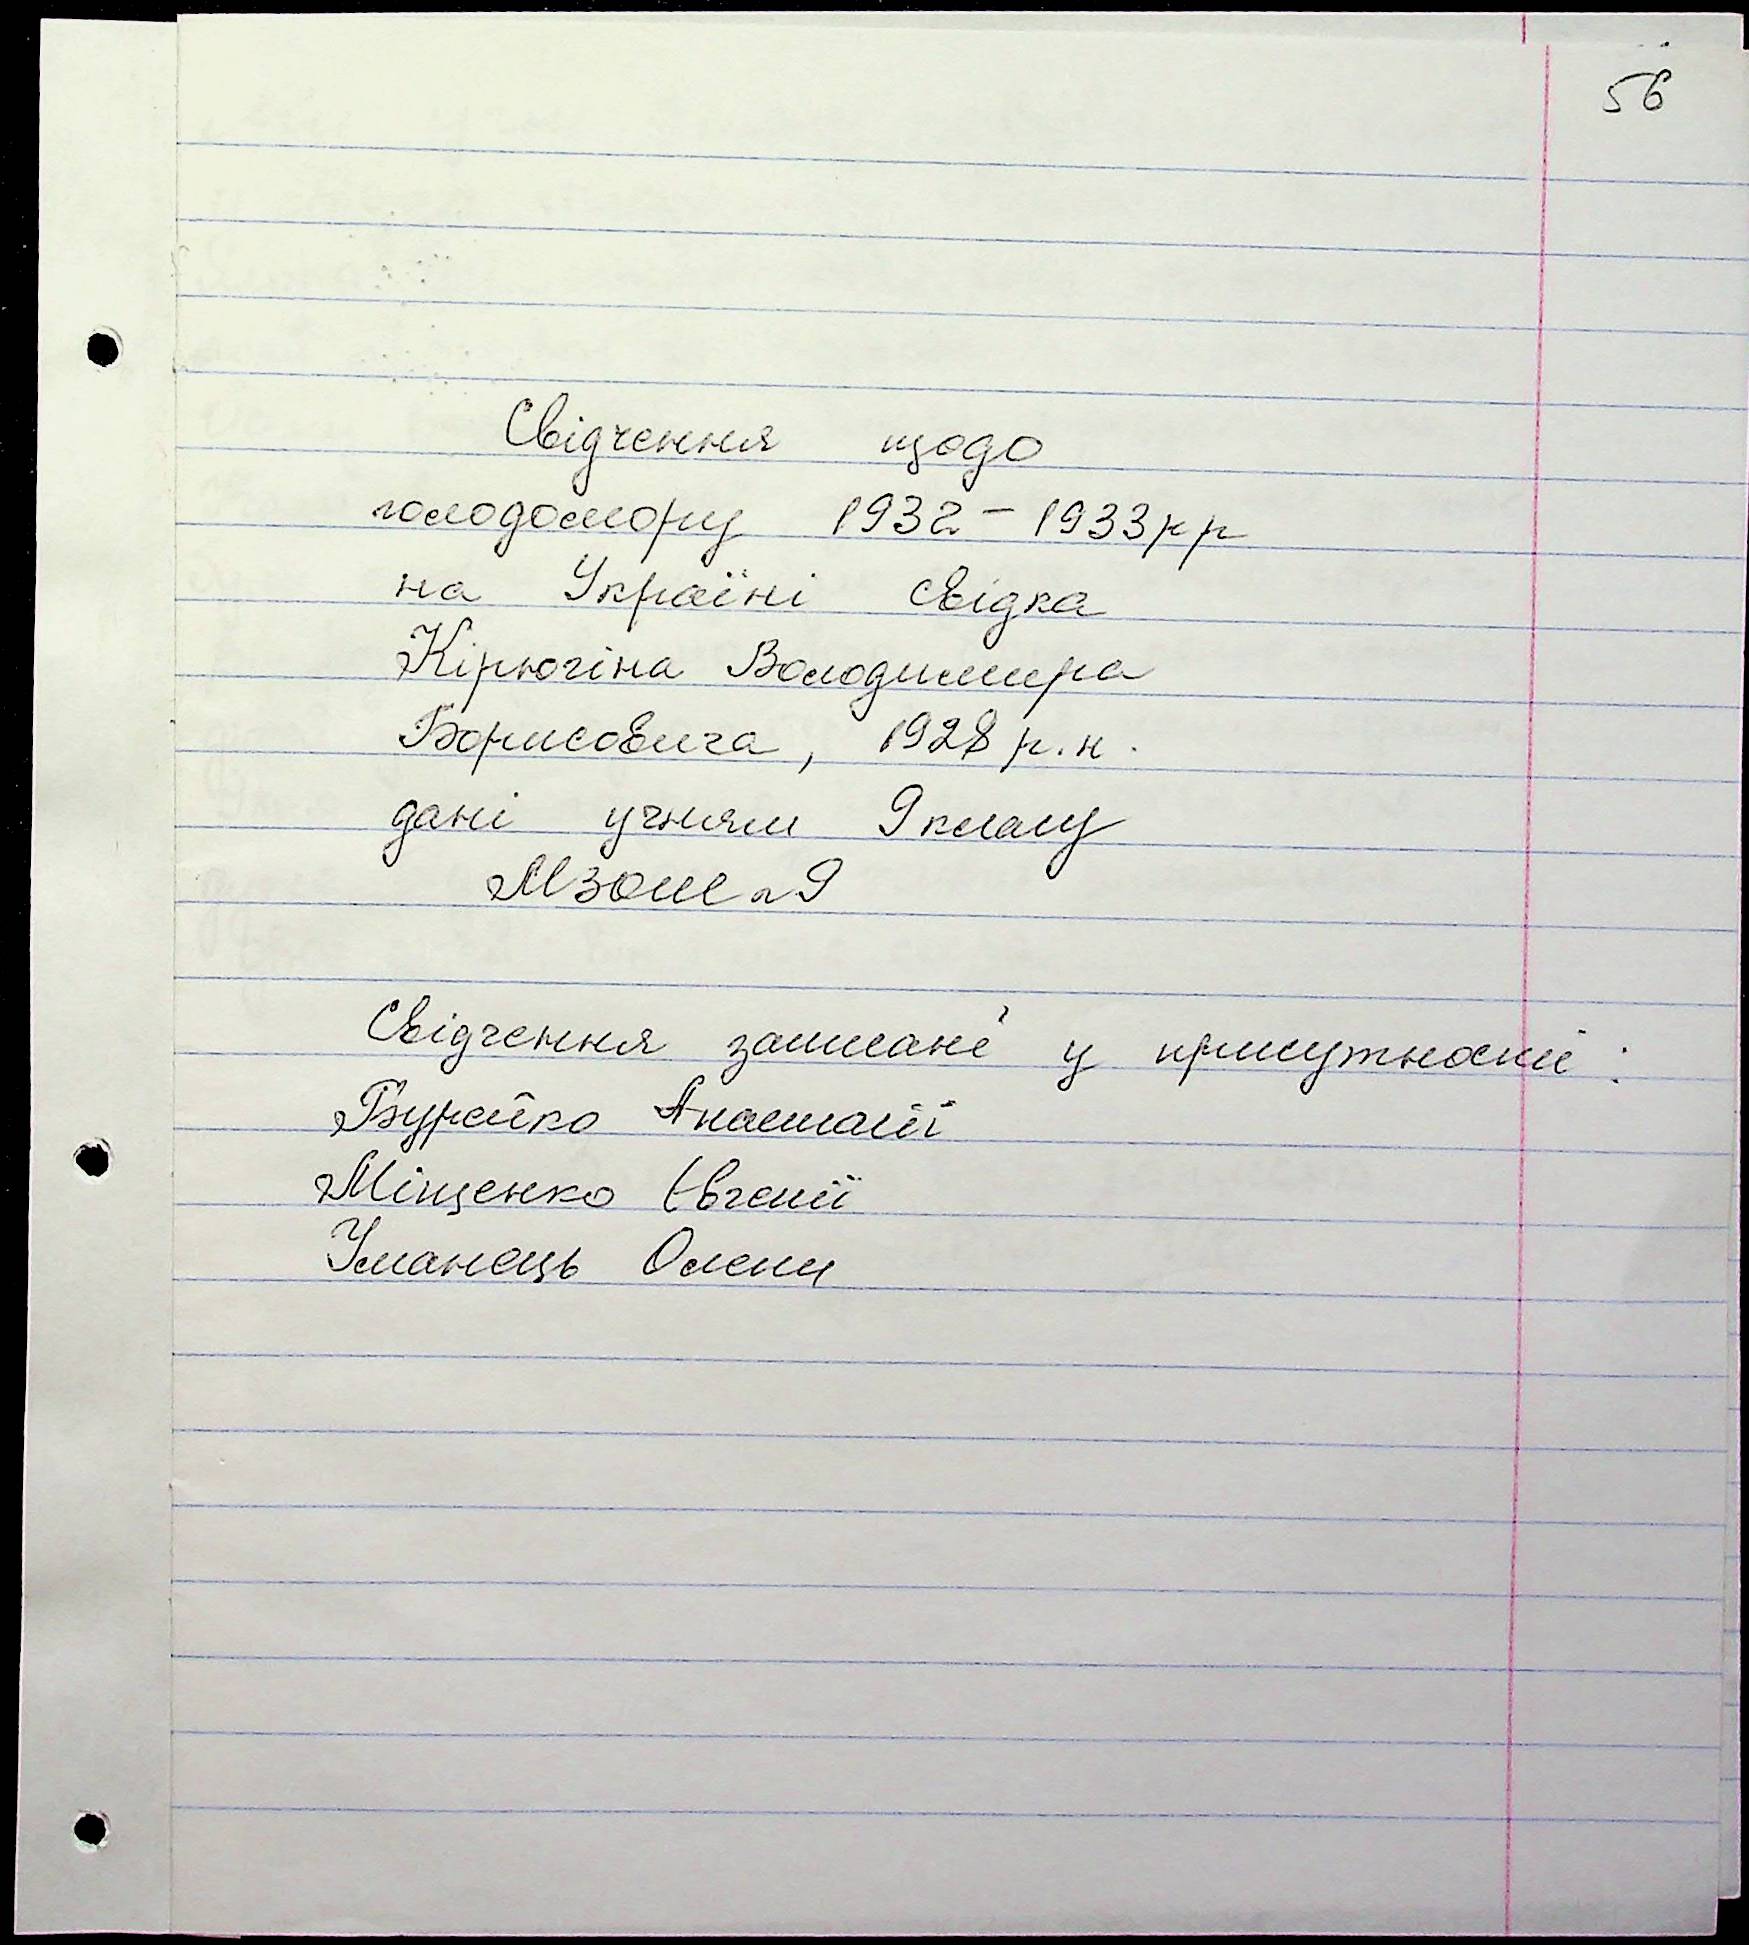 56
Свідчення щодо
голодомору 1932-1933рр
на Україні свідка
Кірюгіна Володимира
Борисовича, 1928 р.н.
дані учням 9 класу
МЗОШ 9
Свідчення записані у присутності:
Бурейко Анастасії
Міщенко Євгенії
Уманець Олени